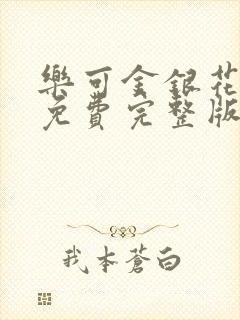 樂可金銀花
免費完整版
我本蒼白